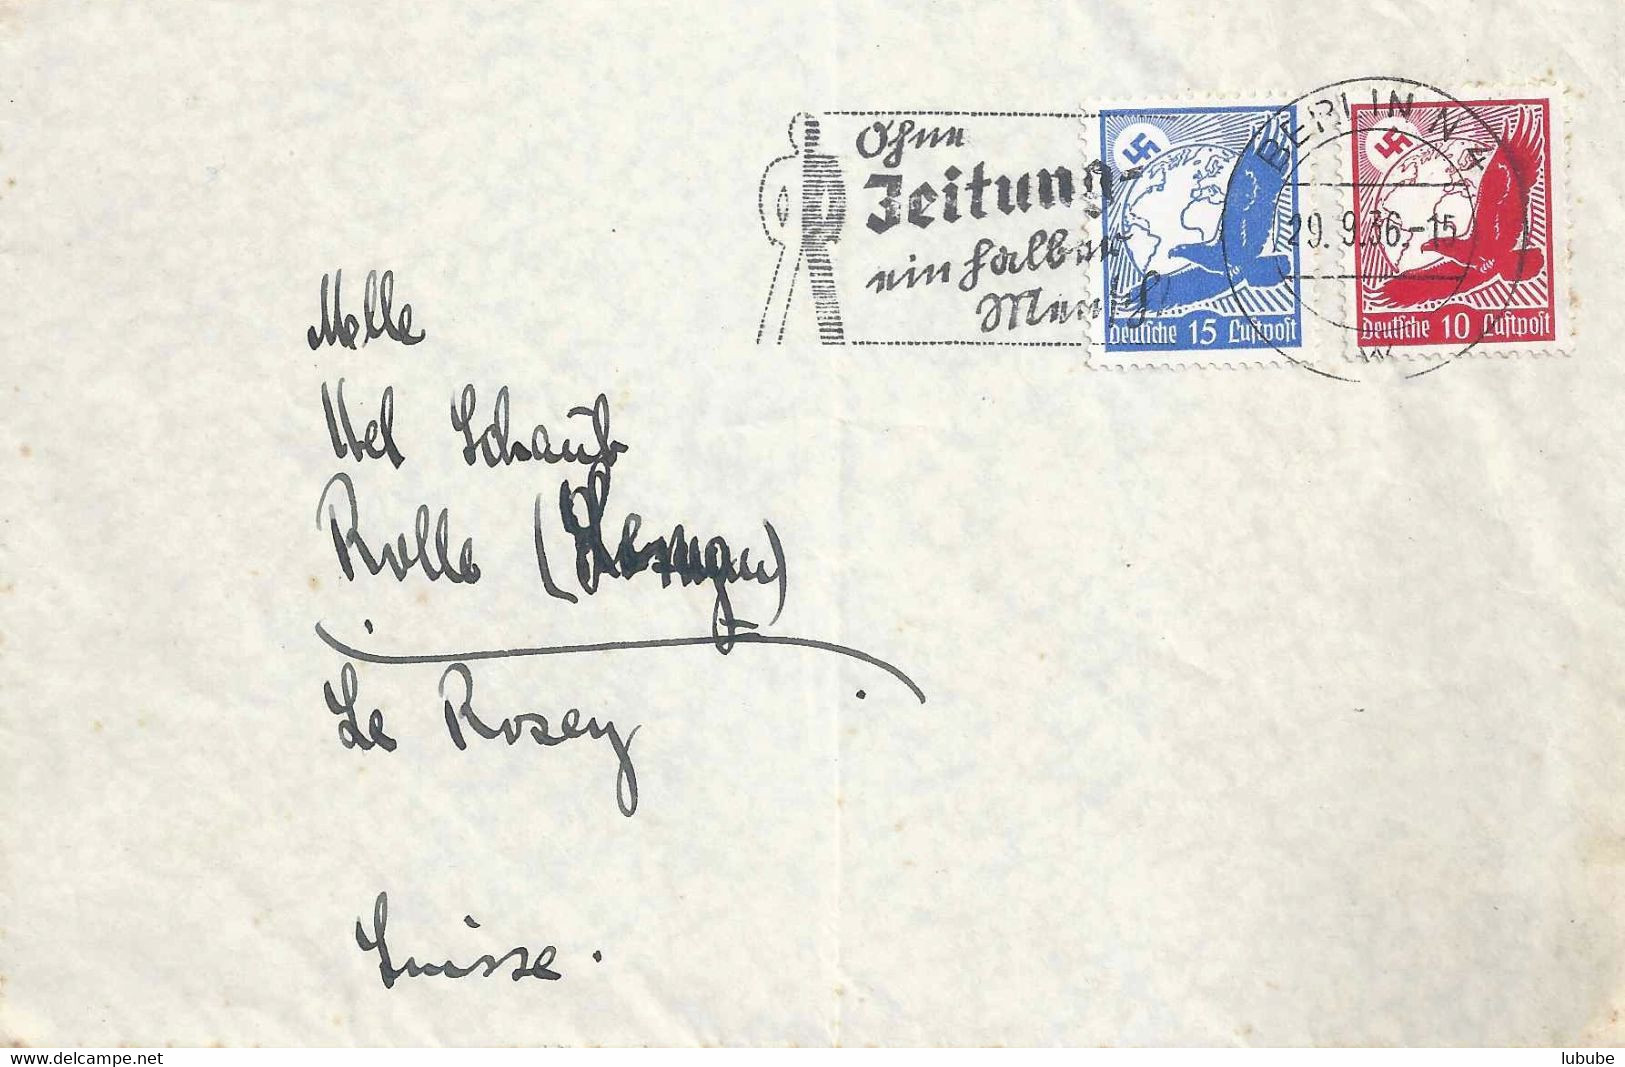 Ohne
Zeitung-
ein halber
Mensch
BERLIN N 4
29. 9.36.-15
Deutsche 15 Luftpost
Deutsche 10 Luftpost
Melle
Schaub
Rolle
Le Rosey
Suisse.
www.delcampe.net
lubube